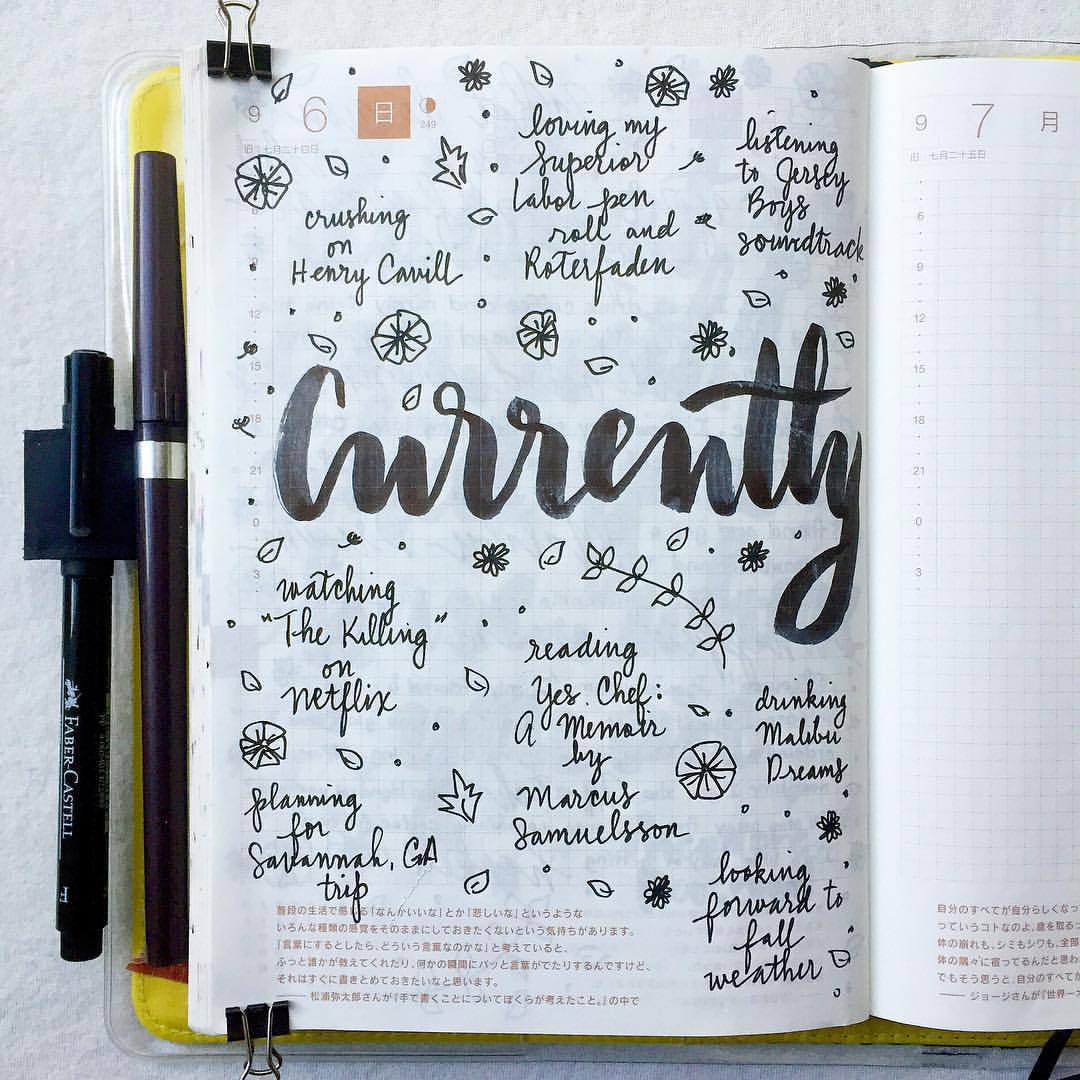 9 6 日
249
旧 七月二十四日
crushing
on
Henry Cavill
loving my
Superior
Labor pen
roll and
Roterfaden
listening
to Jersey
Boys
soundtrack
6
9
12
15
18
21
0
3
Currently
watching
"The Killing"
on
Netflix
planning
for
Savannah, GA
trip
reading
Yes, Chef:
A Memoir
by
Marcus
Samuelsson
drinking
Malibu
Dreams
looking
forward to
fall
weather
普段の生活で感じる「なんかいいな」とか「悲しいな」というような
いろんな種類の感覚をそのままにしておきたくないという気持ちがあります。
「言葉にするとしたら、どういう言葉なのかな」と考えていると、
ふっと誰かが教えてくれたり、何かの瞬間にパッと言葉がでたりするんですけど、
それはすぐに書きとめておきたいなと思います。
—— 松浦弥太郎さんが『手で書くことについてぼくらが考えたこと。』の中で
9 7 月
旧 七月二十五日
6
9
12
15
18
21
0
3
自分のすべてが自分らしくなっ
ていうコトなのよ。歳を取る
体の崩れも、シミもシワも、全部
体の隅々に宿ってるんだと思わ
でもそう思うと、自分のすべてが
—— ジョージさんが『世界一
FABER-CASTELL
F